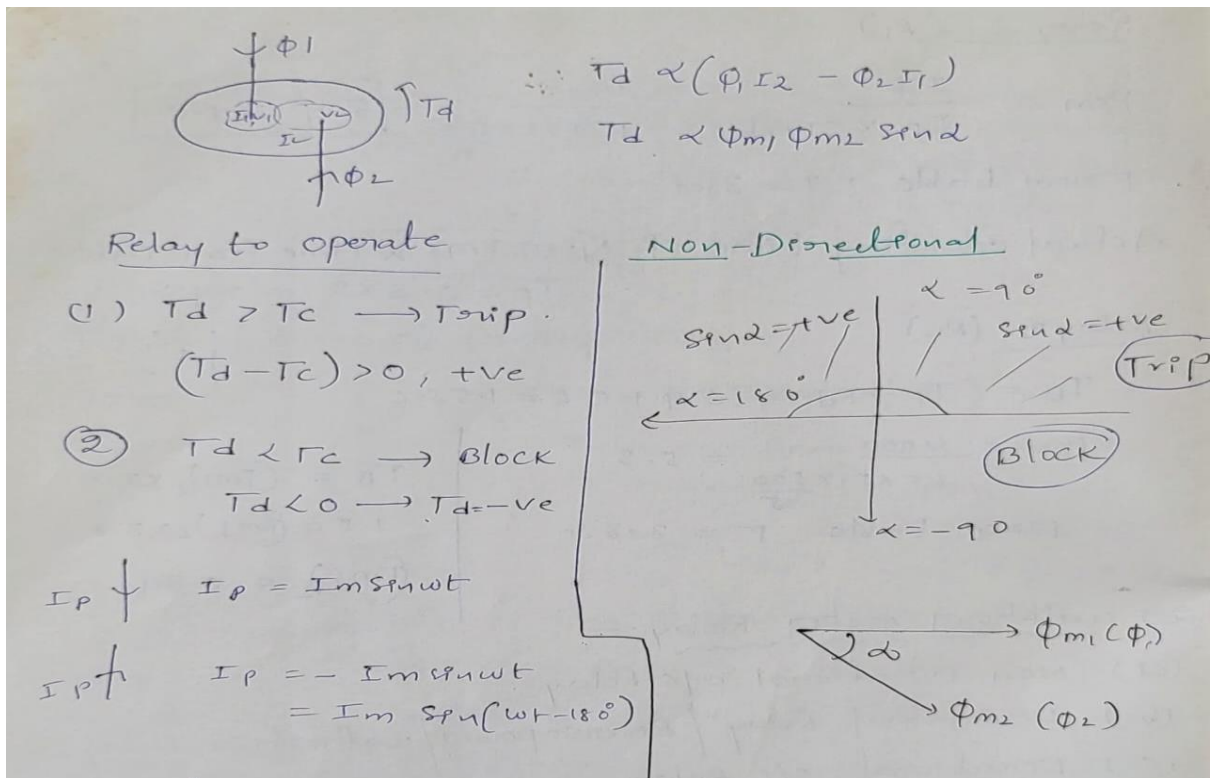 Φ1
I1 V1
V2
I2
Td
Φ2
∴ Td α (Φ1 I2 - Φ2 I1)
Td α Φm1 Φm2 sinα
Relay to operate
(1) Td > Tc → Trip.
(Td - Tc) > 0, +ve
(2) Td < Tc → Block
Td < 0 → Td = -ve
Ip Ip = Im sinwt
Ip Ip = - Im sinwt
= Im sin(wt-180°)
Non-Directional
α = 90°
sinα = +ve
sinα = +ve
Trip
α = 180°
Block
α = -90
Φm1 (Φ1)
α
Φm2 (Φ2)